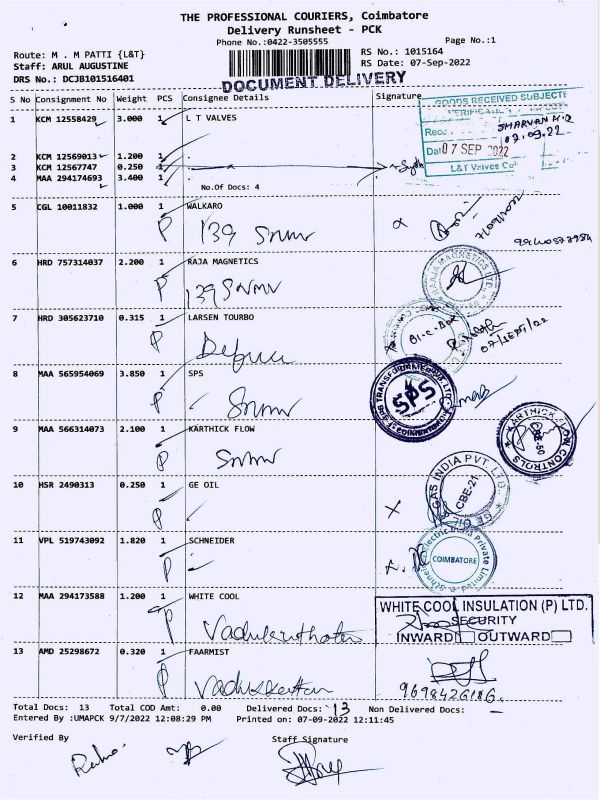 THE PROFESSIONAL COURIERS, Coimbatore
Delivery Runsheet - PCK
Phone No.:0422-3505555
Page No.:1
Route: M . M PATTI {L&T}
RS No.: 1015164
Staff: ARUL AUGUSTINE
RS Date: 07-Sep-2022
DRS No.: DCJB101516401
DOCUMENT DELIVERY
S No Consignment No Weight PCS Consignee Details Signature
GOODS RECEIVED SUBJECT
1 KCM 12558429 3.000 1 L T VALVES
SHARVAN K.R
07.09.22
07 SEP 2022
L&T Valves
2 KCM 12569013 1.200 1 .
3 KCM 12567747 0.250 1 .
4 MAA 294174693 3.400 1 .
No.Of Docs: 4
5 CGL 10011832 1.000 1 WALKARO
P 139 Snmr
6 HRD 757314037 2.200 1 RAJA MAGNETICS
RAJA MAGNETICS
P 139 Snmr
7 HRD 305623710 0.315 1 LARSEN TOURBO
P
8 MAA 565954069 3.850 1 SPS
TRANSFORMERS
SPS
COIMBATORE
P Snmr
9 MAA 566314073 2.100 1 KARTHICK FLOW
KARTHICK FLOW CONTROLS
CBE-50
P Snmr
10 HSR 2490313 0.250 1 GE OIL
GE OIL GAS INDIA PVT. LTD.
CBE-21
P
11 VPL 519743092 1.820 1 SCHNEIDER
Schneider Electric India Private Limited
COIMBATORE
P
12 MAA 294173588 1.200 1 WHITE COOL
WHITE COOL INSULATION (P) LTD.
SECURITY
INWARD OUTWARD
P
13 AMD 25298672 0.320 1 FAARMIST
P
9698426186
Total Docs: 13 Total COD Amt: 0.00 Delivered Docs: 13 Non Delivered Docs: -
Entered By :UMAPCK 9/7/2022 12:08:29 PM Printed on: 07-09-2022 12:11:45
Verified By Staff Signature